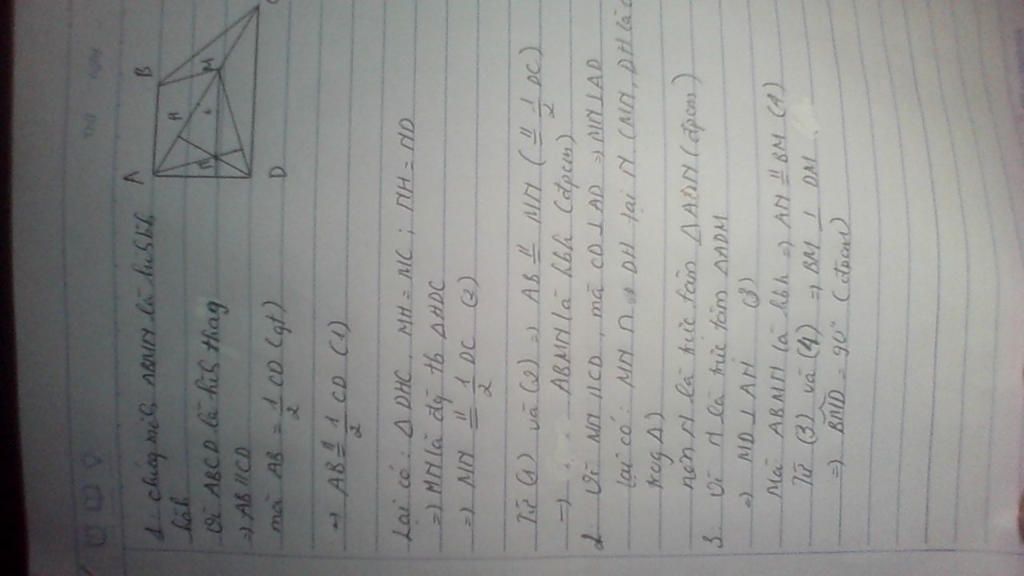 A
B
H
M
D
1. chứng minh ABMN là hình
bình
Vì ABCD là hình thang
=> AB // CD
mà AB = 1/2 CD (gt)
=> AB //= 1/2 CD (1)
Lại có: Δ DHC, MH = MC; NH = ND
=> MN là đg tb Δ HDC
=> MN //= 1/2 DC (2)
Từ (1) và (2) => AB //= MN ( //= 1/2 DC)
=> ABMN là hbh (đpcm)
2. Vì MN // CD, mà CD ⊥ AD => NM ⊥ AD
Lại có: NM ∩ DH tại N (NM, DH là
trong Δ)
nên N là trực tâm Δ ADM (đpcm)
3. Vì N là trực tâm Δ ADM
=> MD ⊥ AN (3)
Mà ABMN là hbh => AN //= BM (4)
Từ (3) và (4) => BM ⊥ DM
=> BMD = 90° (đpcm)